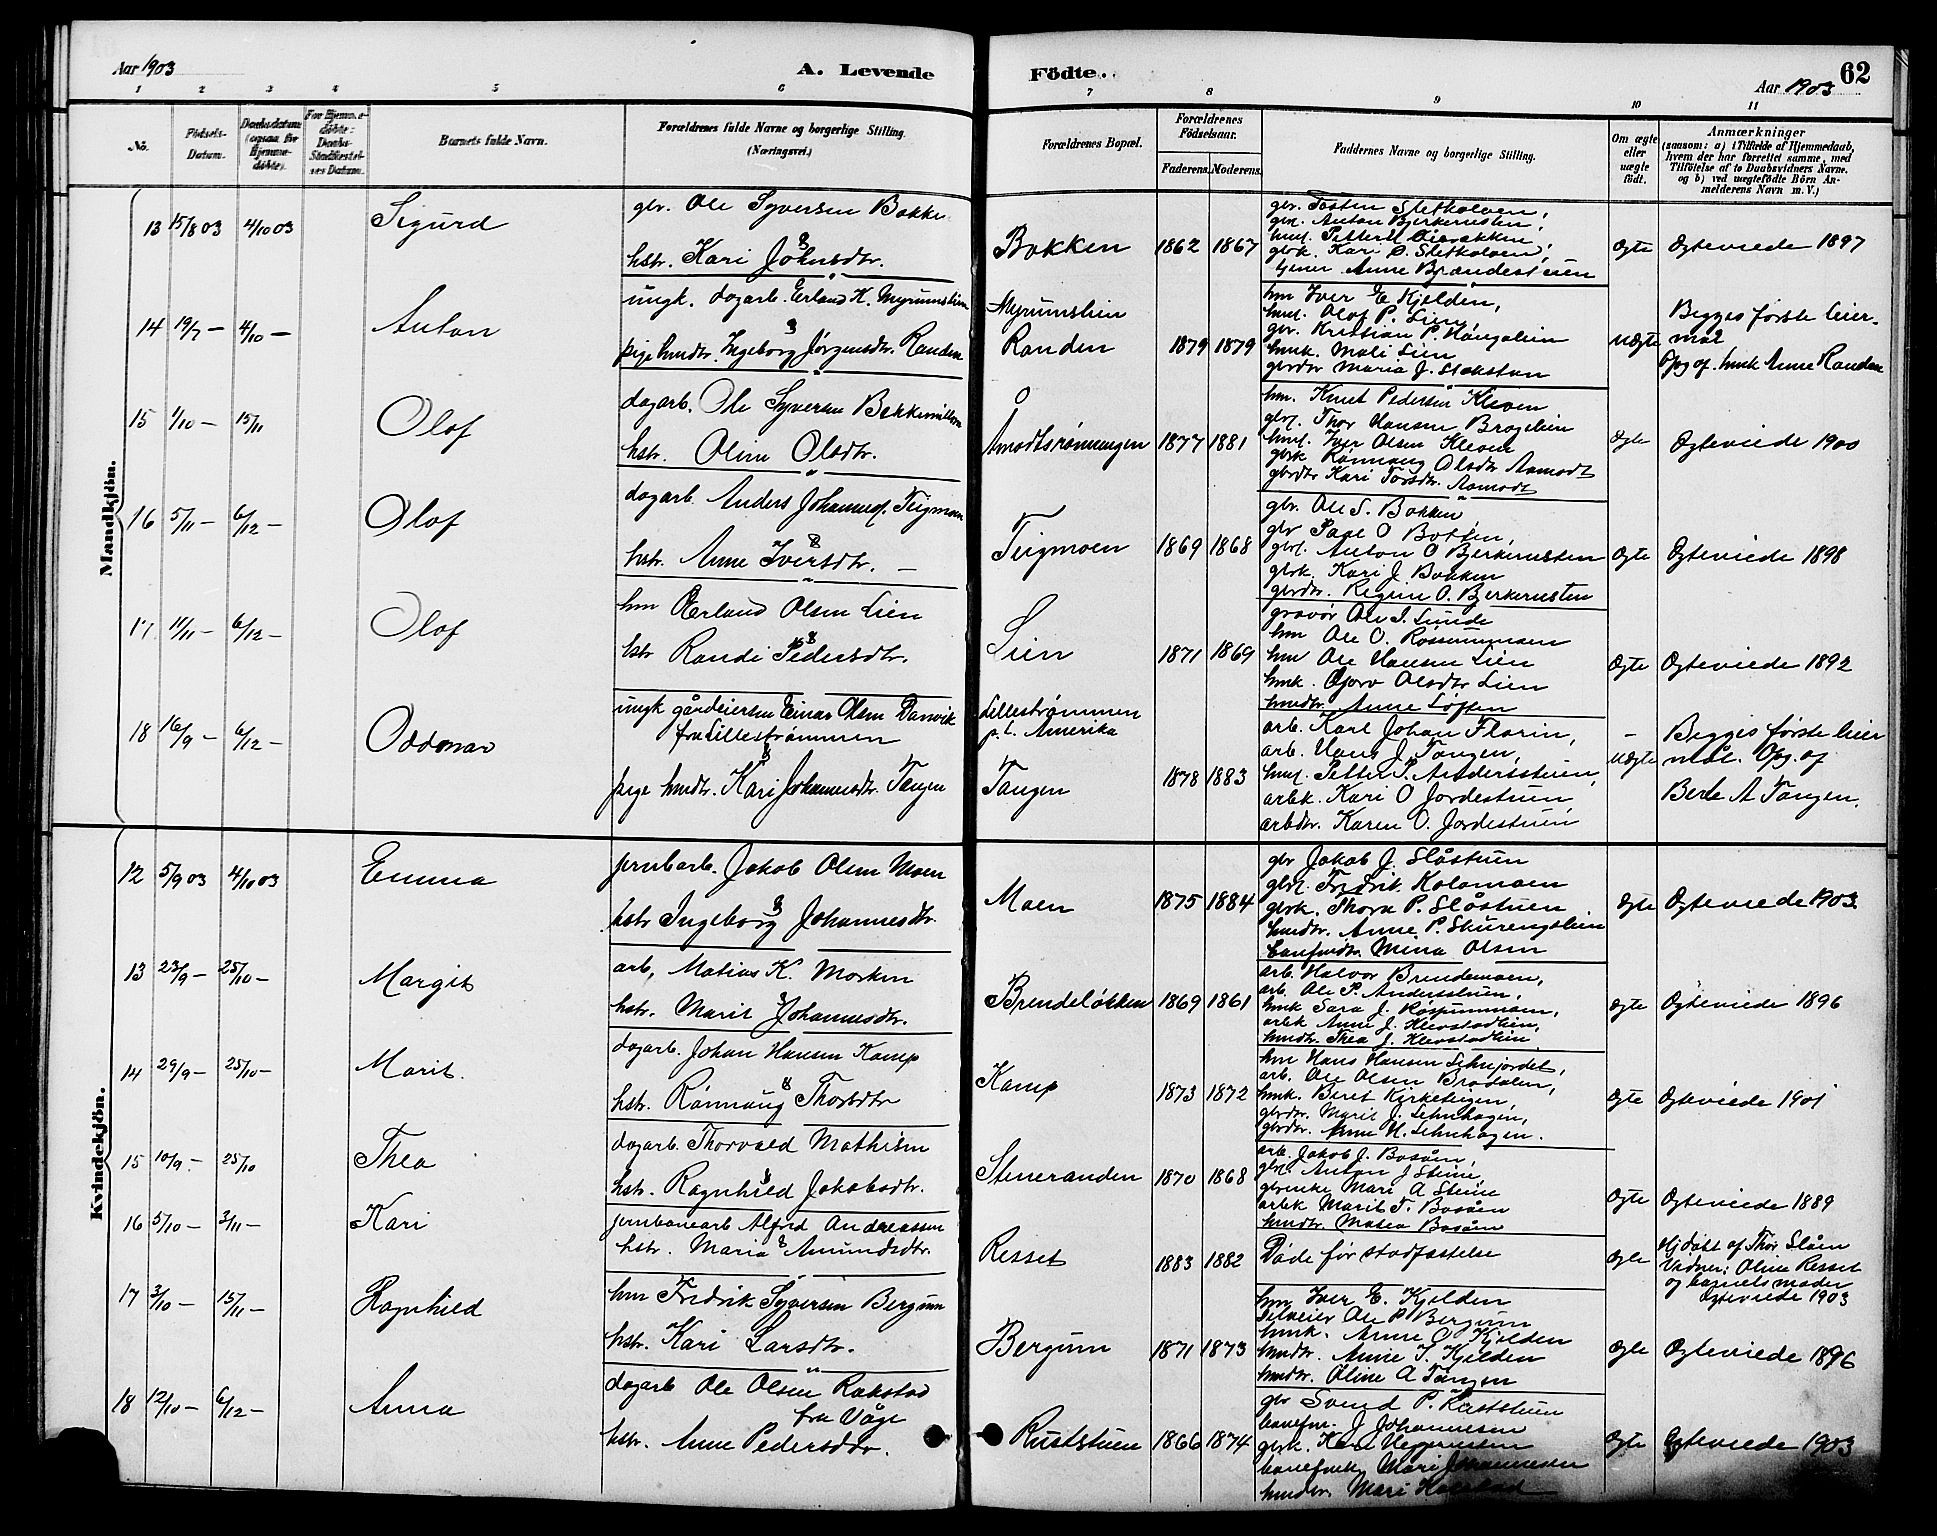 Aar 1903
A. Levende
Födte.
62
Aar 1903
1 2 3 4 5 6 7 8 9 10 11
No.
Födsels-
Datum.
Daabsdatum
(ogsaa for
Hjemme-
döbte).
For Hjemme-
döbte:
Daabs-
Stadfæstel-
ses Datum.
Barnets fulde Navn.
Forældrenes fulde Navne og borgerlige Stilling.
(Næringsvei.)
Forældrenes Bopæl.
Forældrenes
Födselsaar.
Faderens. Moderens.
Faddernes Navne og borgerlige Stilling.
Om ægte
eller
uægte
födt.
Anmærkninger
(saasom: a) i Tilfælde af Hjemmedaab,
hvem der har forrettet samme, med
Tilföielse af to Daabsvidners Navne,
og b) ved uægtefödte Börn An-
melderens Navn m. V.)
Mandkjön.
13 15/8 03 4/10 03 Sigurd
gbr. Ole Syversen Bakke
&
hstr. Kari Johnsdtr.
Bakken 1862 1867
gbr. Tosten Sletholen,
gm. Anton Bjerkerusten,
gbrk. Kari O. Sletholen,
tjener Anne Brændestuen
Ægte Ægteviede 1897
14 19/7 – 4/10 – Anton
ungk. dagarb. Erland H. Myrumslien
&
pige hmdtr. Ingeborg Jørgensdtr. Randen
Myrumslien
Randen 1879 1879
hm Iver E Kjelden,
hmf. Olof P. Lien,
gbr. Kristian P. Haugalien
hmk. Mali Lien
gbrdtr Maria J. Stokstun
uægte
Begges første leier-
mål
Opg af. hmk Anne Randen
15 1/10 – 15/11 Olof
dagarb. Ole Syversen Bekkemellem
hstr. Oline Olsdtr.
Åmodtsrønningen 1877 1881
hm. Knut Pedersen Kleven
gbrf. Thor Hansen Bragelien
hmf. Iver Olsen Kleven
gbrk Rønnaug Olsdtr Aamodt
gbrdtr Kari Torsdtr. Aamodt
Ægte Ægteviede 1900
16 5/11 – 6/12 – Olof
dagarb. Anders Johannesf. Teigmoen
&
hstr. Anne Iversdtr. –
Teigmoen 1869 1868
gbr. Ole S. Bakken
gbr Paul O Botten,
gbrf. Anton O Bjerkerusten
gbrk. Kari J. Bakken
gbrdtr. Regine O. Bjerkerusten
Ægte Ægteviede 1898
17 11/11 – 6/12 – Olof
hm Erland Olsen Lien
&
hstr Randi Pedersdtr.
Lien 1871 1869
gravør Ole I. Lunde
hm Ole O. Rossummoen
hm Ole Hansen Lien
hmk. Gjøro Olsdtr Lien
hmdtr. Anne Løften
Ægte Ægteviede 1892
18 16/9 – 6/12 – Oddmar
ungk gårdeiersøn Einar Olsen Danvik
fra Lillestrømmen
&
pige hmdtr. Kari Johannesdtr. Tangen
Lillestrømmen
p.t. Amerika
Tangen 1878 1883
arb. Karl Johan Florin,
arb. Hans J. Tangen,
hmf. Petter P. Andersstuen,
arbk. Kari O Jordestuen,
arbdtr. Karen O. Jordestuen
–
uægte
Begges første leier
mål. Opg. af
Berte A Tangen.
Kvindekjön.
12 5/9 03 4/10 03 Emma
jernbarb. Jakob Olsen Moen
&
hstr Ingeborg Johannesdtr.
Moen 1875 1884
gbr Jakob J. Slåstuen
gbrf. Fredrik Kolomoen
gbrk. Thora P. Slåstuen
hmdtr. Anne P. Skurengslien
banefmdtr. Mina Olsen
Ægte Ægteviede 1903.
13 23/9 – 25/10 – Margit
arb. Matias K. Morken
&
hstr. Marit Johannesdtr.
Brendeløkken 1869 1861
arb. Halvor Brendemoen,
arb. Ole P. Andersstuen,
hmk Sara J. Rospummoen,
arbk Anne J. Klevstadlien,
hmdtr. Thea J. Klevstadlien
Ægte Ægteviede 1896
14 29/9 – 25/10 – Marit.
dagarb. Johan Hansen Kamp
&
hstr. Rønnaug Thorsdtr
Kamp 1873 1872
hm Hans Hansen Lehnjordet,
arb. Ole Olsen Brodalen,
hmk. Berit Kirketeigen,
gbrdtr. Marit J. Lehnhagen,
gbrdtr. Anne H. Lehnhagen.
Ægte Ægteviede 1901
15 10/9 – 25/10 Thea
dagarb. Thorvald Mathisen
&
hstr. Ragnhild Jakobsdtr.
Steneranden 1870 1868
arb. Jakob J. Bosåen,
gbrf. Anton J Steine,
gbrenke Mari A Steine
arbk Marit T. Bosåen
hmdtr. Matea Bosåen
Ægte Ægteviede 1889
16 5/10 – 3/11 – Kari
jernbanearb Alfred Andreassen
&
hstr. Maria Amundsdtr.
Resset 1883 1882
Døde før stadfæstelse
Ægte
Hj døbt af Thor Slåen
Vidner: Oline Resset
og barnets moder
Ægteviede 1903
17 3/10 – 15/11 – Ragnhild
hm Fredrik Syversen Bergum
hstr. Kari Larsdtr.
Bergum 1871 1873
hm Iver E. Kjelden
Selveier Ole P Bergum
hmk. Anne O Kjelden
hmdtr. Anne I. Kjelden
hmdtr. Oline A Tangen
Ægte Ægteviede 1896
18 12/10 – 6/12 – Anna
dagarb Ole Olsen Rakstad
fra Våge
hstr. Anne Pedersdtr.
Ruststuen 1866 1874
gbr Svend P. Ruststuen
banefm. J Johannesen
gbrk. Kari Heggerusten
banefmk Mari Johannesen
hmdtr. Mari
Ægte Ægteviede 1903